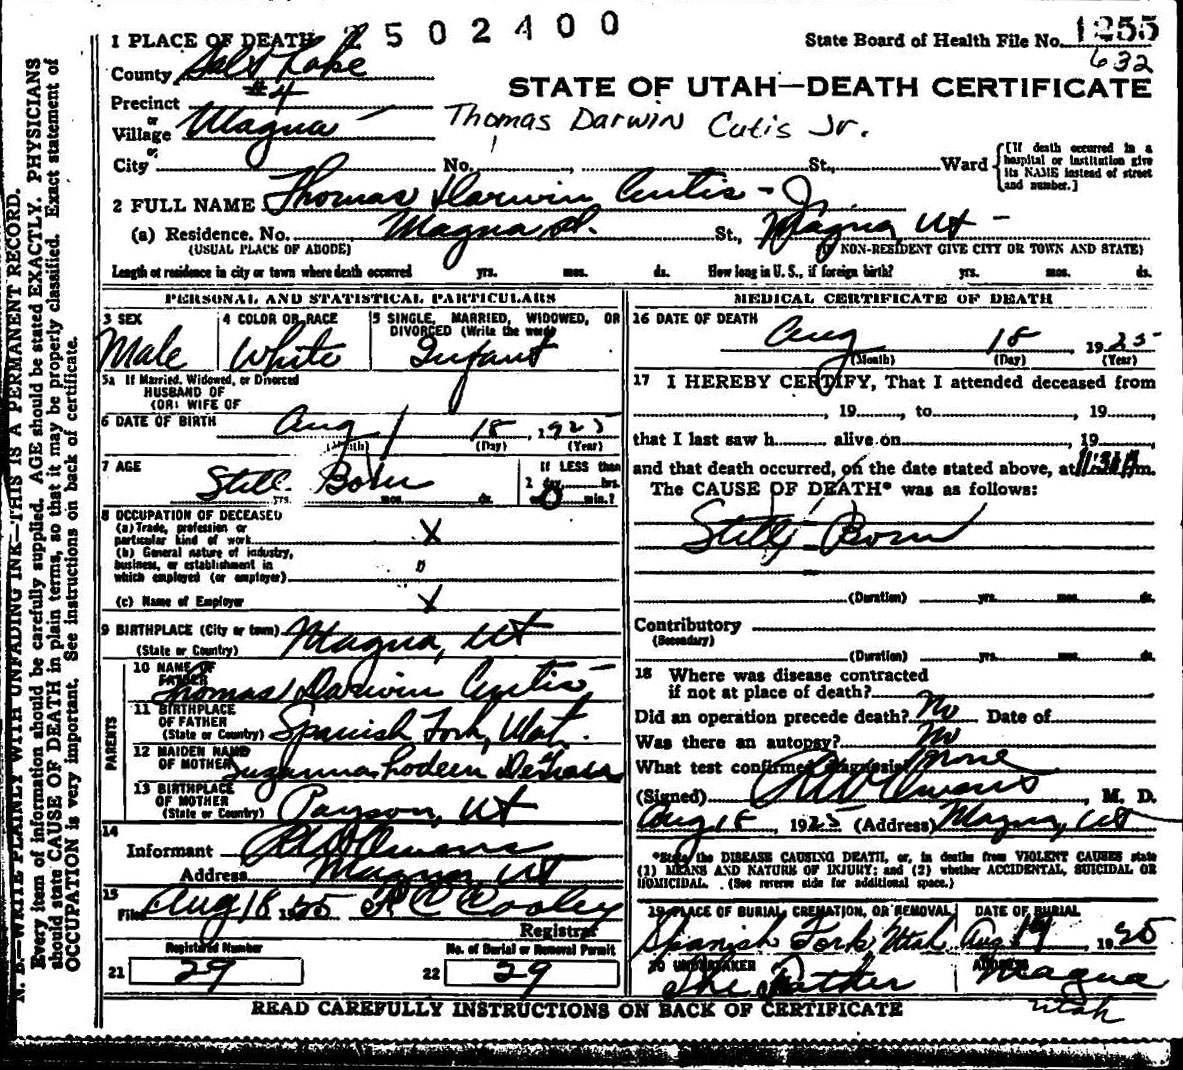 2502400
1 PLACE OF DEATH
State Board of Health File No. 1255
632
County Salt Lake
Precinct #4
or
Village Magna
STATE OF UTAH—DEATH CERTIFICATE
Thomas Darwin Cutis Jr.
City or No. St., Ward
[If death occurred in a hospital or institution give its NAME instead of street and number.]
2 FULL NAME Thomas Darwin Curtis - Jr
(a) Residence. No. Magna St., Magna, Ut -
(USUAL PLACE OF ABODE) (IF NON-RESIDENT GIVE CITY OR TOWN AND STATE)
Length of residence in city or town where death occurred yrs. mos. ds. How long in U. S., if foreign birth? yrs. mos. ds.
PERSONAL AND STATISTICAL PARTICULARS
3 SEX
Male
4 COLOR OR RACE
White
5 SINGLE, MARRIED, WIDOWED, OR DIVORCED (Write the word)
Infant
5a If Married, Widowed, or Divorced
HUSBAND OF
(OR) WIFE OF
6 DATE OF BIRTH Aug 18, 1925
(Month) (Day) (Year)
7 AGE Still Born
yrs. mos. ds.
If LESS than
1 day hrs.
or 0 min.?
8 OCCUPATION OF DECEASED
(a) Trade, profession or
particular kind of work X
(b) General nature of industry,
business, or establishment in
which employed (or employer)
(c) Name of Employer X
9 BIRTHPLACE (City or town) Magna, Ut
(State or Country)
PARENTS
10 NAME OF
FATHER Thomas Darwin Curtis
11 BIRTHPLACE
OF FATHER
(State or Country) Spanish Fork, Utah.
12 MAIDEN NAME
OF MOTHER Suzanna
13 BIRTHPLACE
OF MOTHER
(State or Country) Payson, Ut
14
Informant Owens
Address Magna Ut
15
Filed Aug 18 1925 R C Cooley
Registrar
Registered Number
21 29
No. of Burial or Removal Permit
22 29
MEDICAL CERTIFICATE OF DEATH
16 DATE OF DEATH
Aug 18, 1925
(Month) (Day) (Year)
17 I HEREBY CERTIFY, That I attended deceased from
, 19 , to , 19 ,
that I last saw h alive on , 19
and that death occurred, on the date stated above, at m.
The CAUSE OF DEATH* was as follows:
Still Born
(Duration) yrs. mos. ds.
Contributory
(Secondary)
(Duration) yrs. mos. ds.
18 Where was disease contracted
if not at place of death?
Did an operation precede death? No Date of
Was there an autopsy? No
What test confirmed diagnosis? None
(Signed) Owens, M. D.
Aug 18, 1925 (Address) Magna, Ut
*State the DISEASE CAUSING DEATH, or, in deaths from VIOLENT CAUSES state
(1) MEANS AND NATURE OF INJURY; and (2) whether ACCIDENTAL, SUICIDAL OR
HOMICIDAL. (See reverse side for additional space.)
19 PLACE OF BURIAL, CREMATION, OR REMOVAL
Spanish Fork Utah
DATE OF BURIAL
Aug 19 1925
20 UNDERTAKER
The Father
ADDRESS
Magna
Utah
READ CAREFULLY INSTRUCTIONS ON BACK OF CERTIFICATE
N. B.—WRITE PLAINLY WITH UNFADING INK—THIS IS A PERMANENT RECORD.
Every item of information should be carefully supplied. AGE should be stated EXACTLY. PHYSICIANS
should state CAUSE OF DEATH in plain terms, so that it may be properly classified. Exact statement of
OCCUPATION is very important. See instructions on back of certificate.